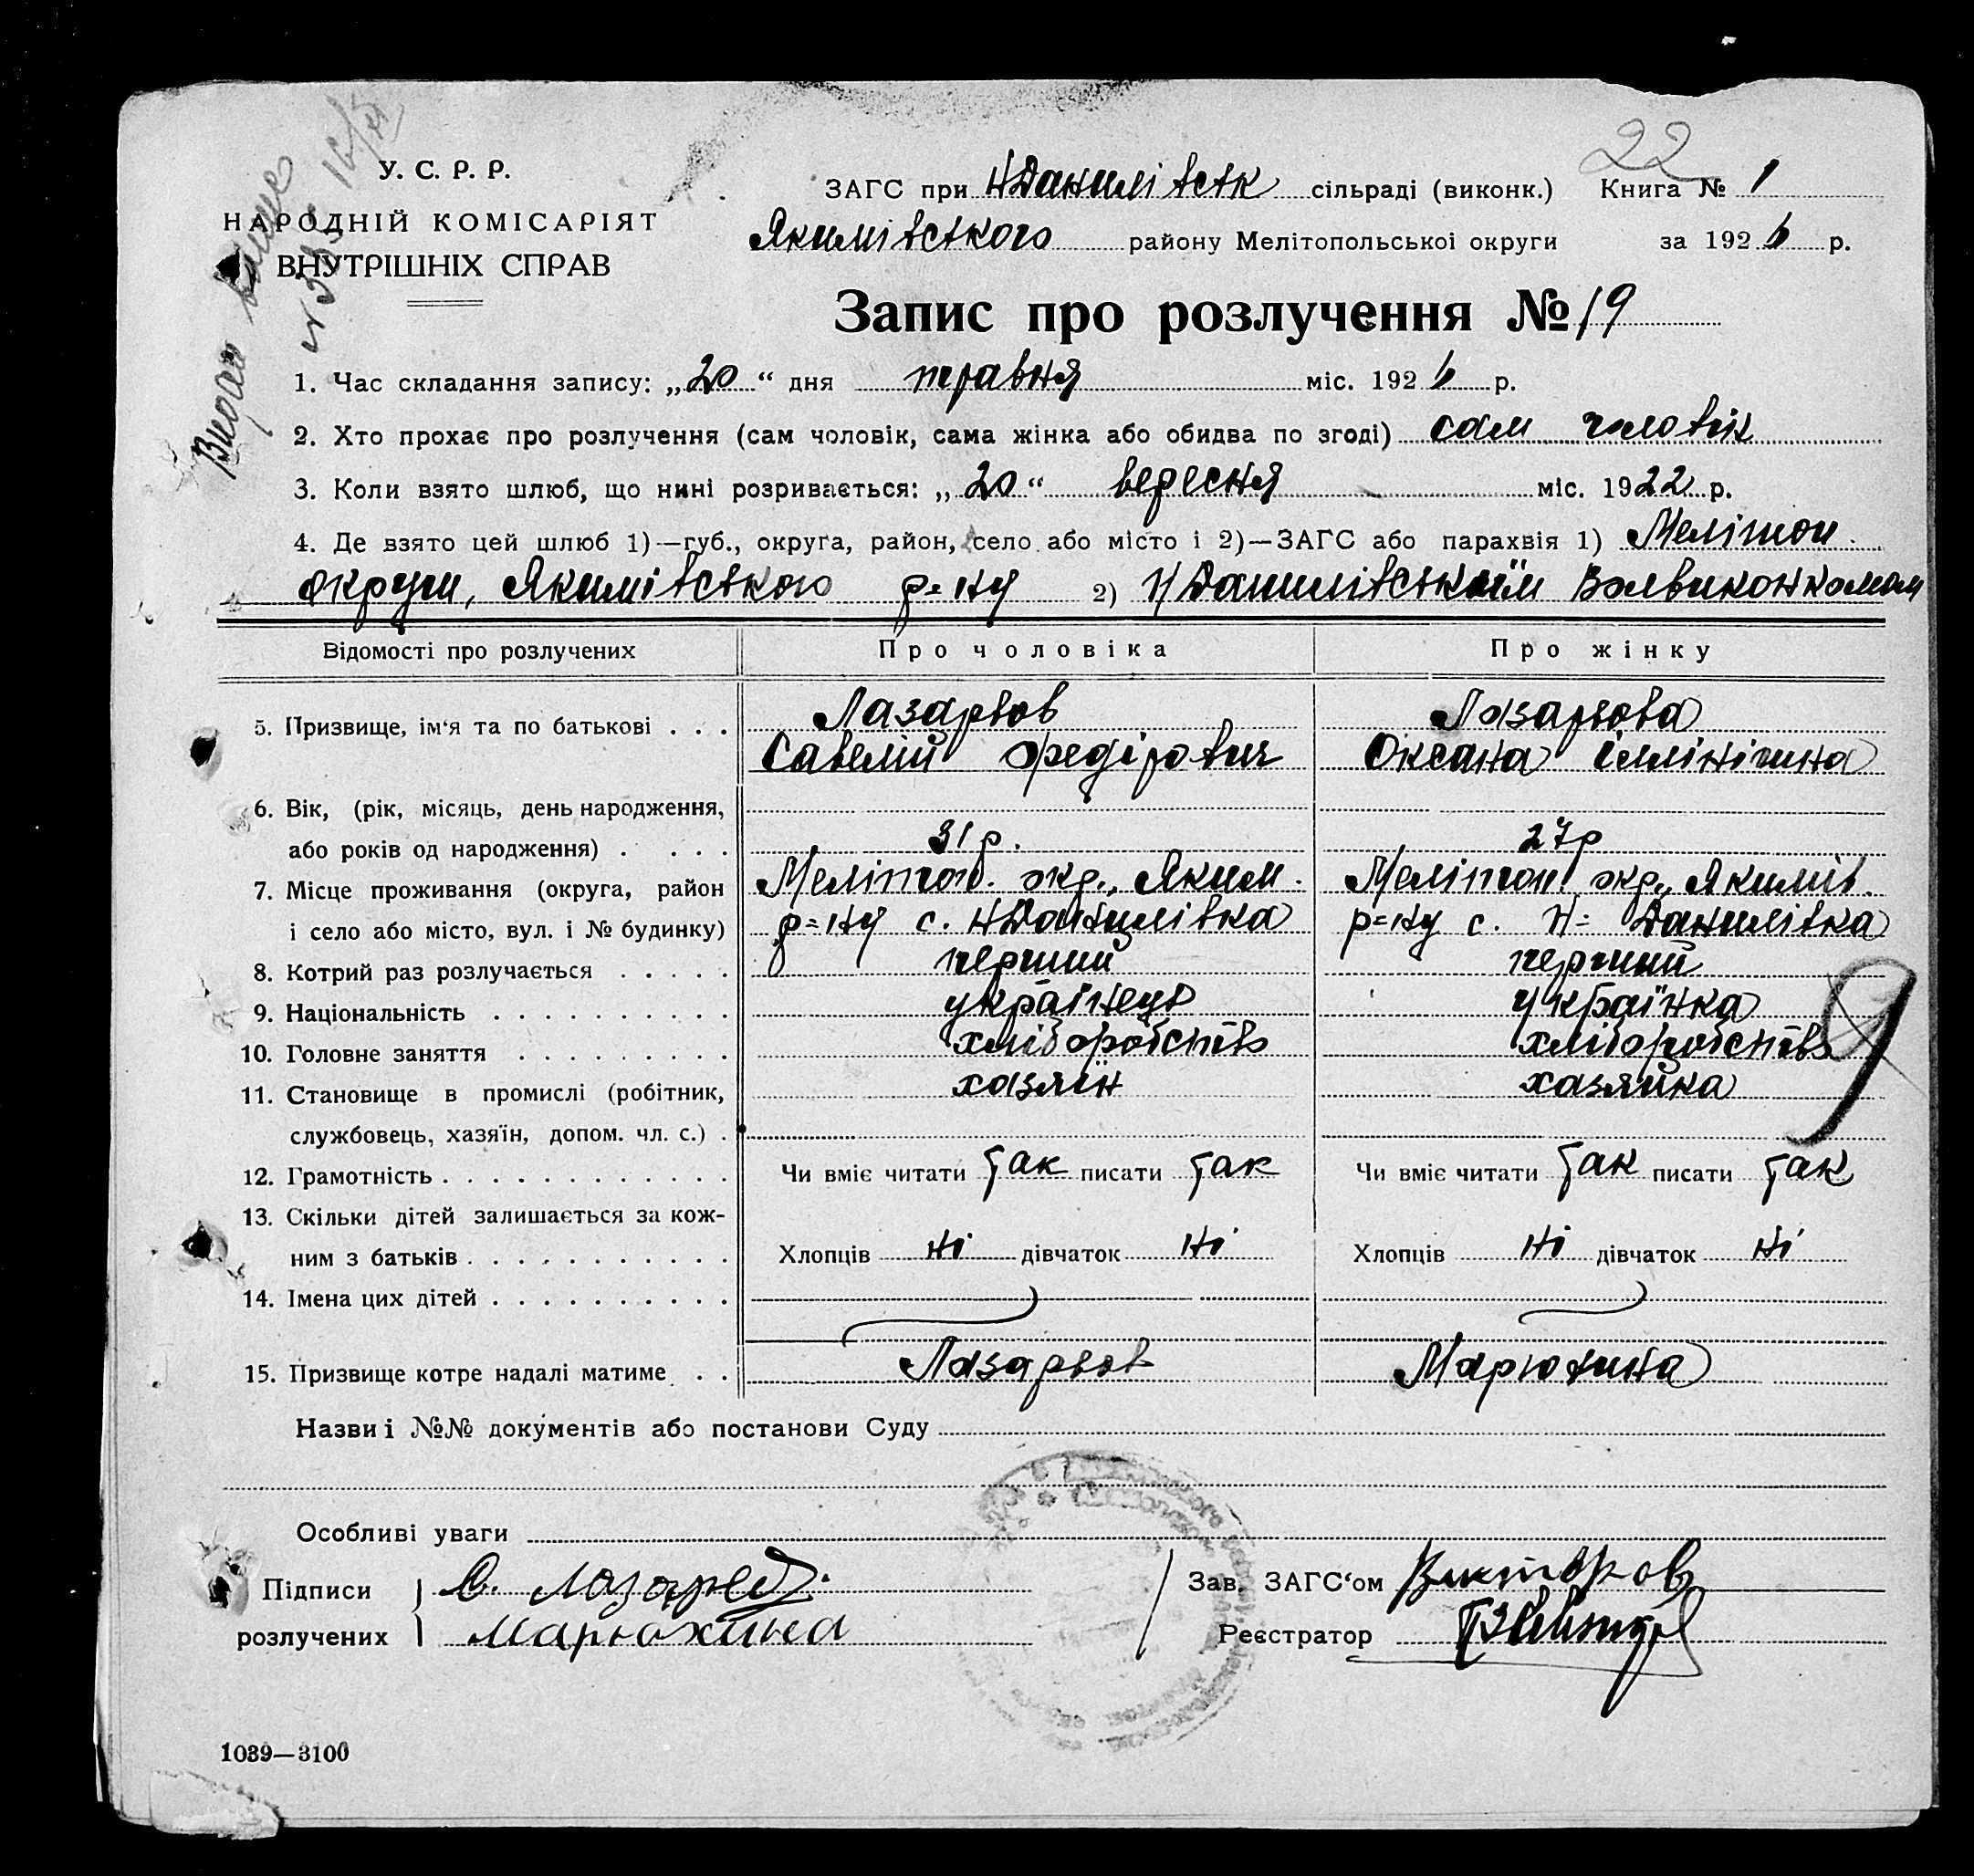 22
У. С. Р. Р.
НАРОДНІЙ КОМІСАРІЯТ
ВНУТРІШНІХ СПРАВ
ЗАГС при НДанилівськ сільраді (виконк.) Книга № 1
Якимівського району Мелітопольської округи за 1926 р.
Запис про розлучення № 19
1. Час складання запису: „20“ дня травня міс. 1926 р.
2. Хто прохає про розлучення (сам чоловік, сама жінка або обидва по згоді) сам чоловік
3. Коли взято шлюб, що нині розривається: „20“ вересня міс. 1922 р.
4. Де взято цей шлюб 1)—губ., округа, район, село або місто і 2)—ЗАГС або парахвія 1) Мелітоп.
округи, Якимівського р-ну 2) Н/Данилівським Волвиконкомом
Відомості про розлучених Про чоловіка Про жінку
5. Призвище, ім‘я та по батькові . . . Лазарьов Лазарьова
Савелій Федірович Оксана
6. Вік, (рік, місяць, день народження,
або років од народження) . . . . 31 р. 27 р
7. Місце проживання (округа, район Мелітоп. окр., Яким. Мелітоп. окр., Якимів.
і село або місто, вул. і № будинку) р=ну с. НДанилівка р=ну с. Н= Данилівка
8. Котрий раз розлучається . . . . . перший перший
9. Національність . . . . . . . . . . українець українка
10. Головне заняття . . . . . . . . . хліборобство хліборобство
11. Становище в промислі (робітник, хазяїн хазяйка
службовець, хазяїн, допом. чл. с.) .
12. Грамотність . . . . . . . . . . . . Чи вміє читати так писати так Чи вміє читати так писати так
13. Скільки дітей залишається за кож-
ним з батьків . . . . . . . . . . . Хлопців ні дівчаток ні Хлопців ні дівчаток ні
14. Імена цих дітей . . . . . . . . . .
15. Призвище котре надалі матиме . . Лазарьов Марюхина
Назви і №№ документів або постанови Суду
Особливі уваги
Підписи С. Лазарев. Зав. ЗАГС‘ом Викторов
розлучених Марюхина Реєстратор
1039—3100